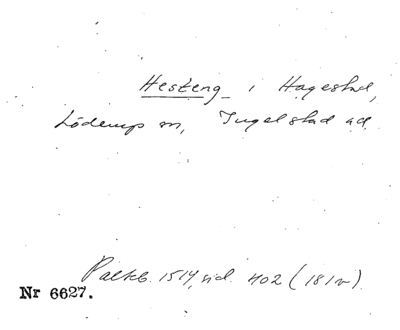 Hesteng i Hagestad,
Löderup sn, Ingelstad hd.
Palteb. 1514, sid. 402 (181v).
Nr 6627.